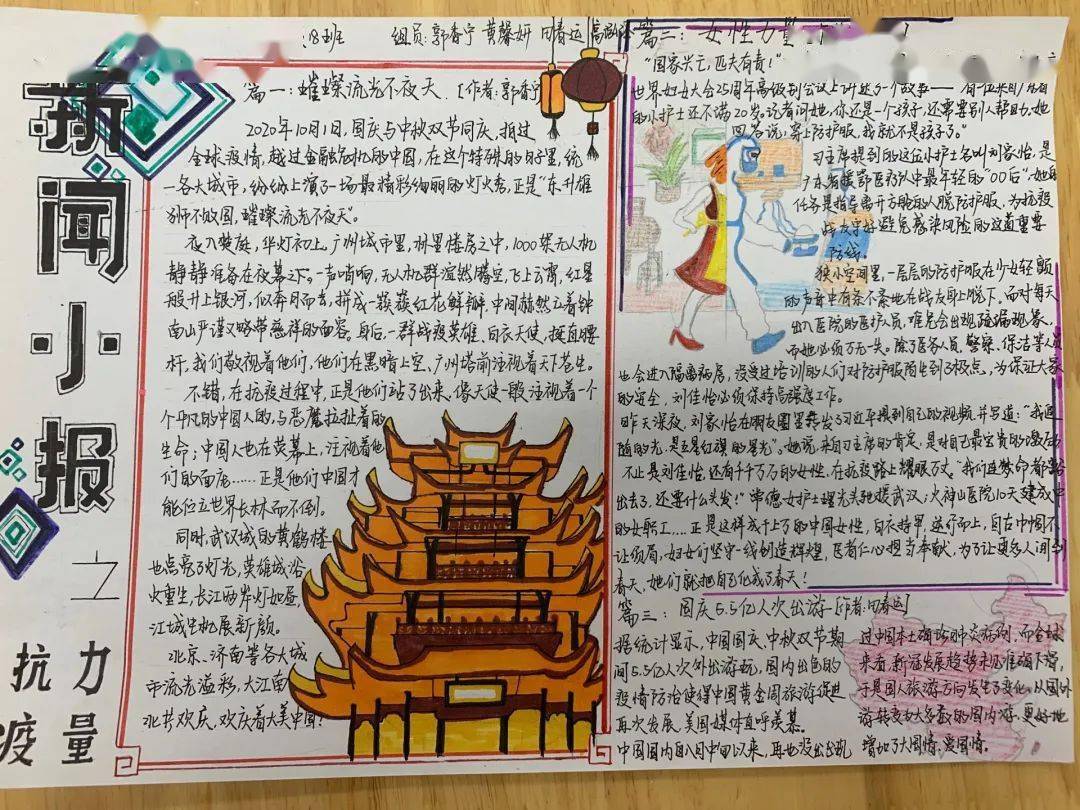 新闻小报
之
抗疫
力量
18班 组员:郭香宁 黄馨妍 田春运
篇一:璀璨流光不夜天 [作者:郭香宁
2020年10月1日,国庆与中秋双节同庆,抱过
全球疫情,越过金融危机的中国,在这个特殊的日子里,统
一各大城市,纷纷上演了一场最精彩绚丽的灯火秀,正是“东升雄
狮不败国,璀璨流光不夜天”。
夜入楚庭,华灯初上,广州城市里,林里楼房之中,1000架无人机
静静准备在夜幕之下。一声哨响,无人机群演然腾空,飞上云霄,红星
般升上银河,似奔月而去,拼成一簇簇红花鲜瓣,中间赫然立着钟
南山严谨又略带慈祥的面容。身后,一群战疫英雄、白衣天使,挺直腰
杆,我们敬视着他们,他们在黑暗上空、广州塔前注视着天下苍生。
不错,在抗疫过程中,正是他们站了出来,像天使一般注视着一个
个平凡的中国人的,与恶魔拉扯着的
生命;中国人也在荧幕上,注视着他
们的面庞……正是他们中国才
能位立世界长林而不倒。
同时,武汉城的黄鹤楼
也点亮了灯光,英雄城浴
火重生,长江两岸灯如昼,
江城生机展新颜。
北京、济南等各大城
市流光溢彩,大江南
北共欢庆,欢庆着大美中国!
篇二:女性力量
“国家兴亡,匹夫有责!”
世界妇女大会25周年高级别会议上讲述了个故事——
的小护士还不满20岁。记者问她,你还是一个孩子,还需要别人帮助,她
回答说,穿上防护服,我就不是孩子了。”
习主席提到的这位小护士名叫刘家怡,是
广东省援鄂医疗队中最年轻的“00后”,她的
任务是指导离开方舱的人脱防护服,为抗疫
战友守好避免感染风险的这道重要
防线。
狭小空间里,一层层的防护服在少女轻颤
的声音中有条不紊地在战友身上脱下。面对每天
出入医院的医护人员,难免会出现疏漏现象,
而她必须万无一失。除了医务人员,警察、保洁等人员
也会进入隔离病房,没受过培训的人们对防护服陌生到了极点,为保证大家
的安全,刘佳怡必须保持高强度工作。
昨天深夜,刘家怡在朋友圈里转发习近平提到自己的视频,并写道:“我追
随的光,是五星红旗的星光”。她说,来自习主席的肯定,是对自己最宝贵的激励
不止是刘佳怡,还有千千万万的女性,在抗疫路上耀眼万丈,“我们连梦命都豁
出去了,还要什么头发!”常德女护士理光头驰援武汉,火神山医院10天建成中
的女职工……正是这样成千上万的中国女性,白衣持甲,逆行而上,自在巾帼不
让须眉,妇女们坚守一线创造辉煌,医者仁心担当奉献,为了让更多人间到
春天,她们就把自己化成了春天!
篇三:国庆5.5亿人次出游-[作者:田春运]
据统计显示,中国国庆、中秋双节期
间5.5亿人次外出游玩,国内出色的
疫情防治使得中国黄金周旅游促进
再次发展,美国媒体直呼羡慕
中国国内自八月中旬以来,再也没出现
过中国本土确诊肺炎病例,而全球
来看,新冠发展趋势未见准确下增,
于是国人旅游方向发生了变化,从国外
游转变为大多数的国内游,更好地
增加了大国情:爱国情。